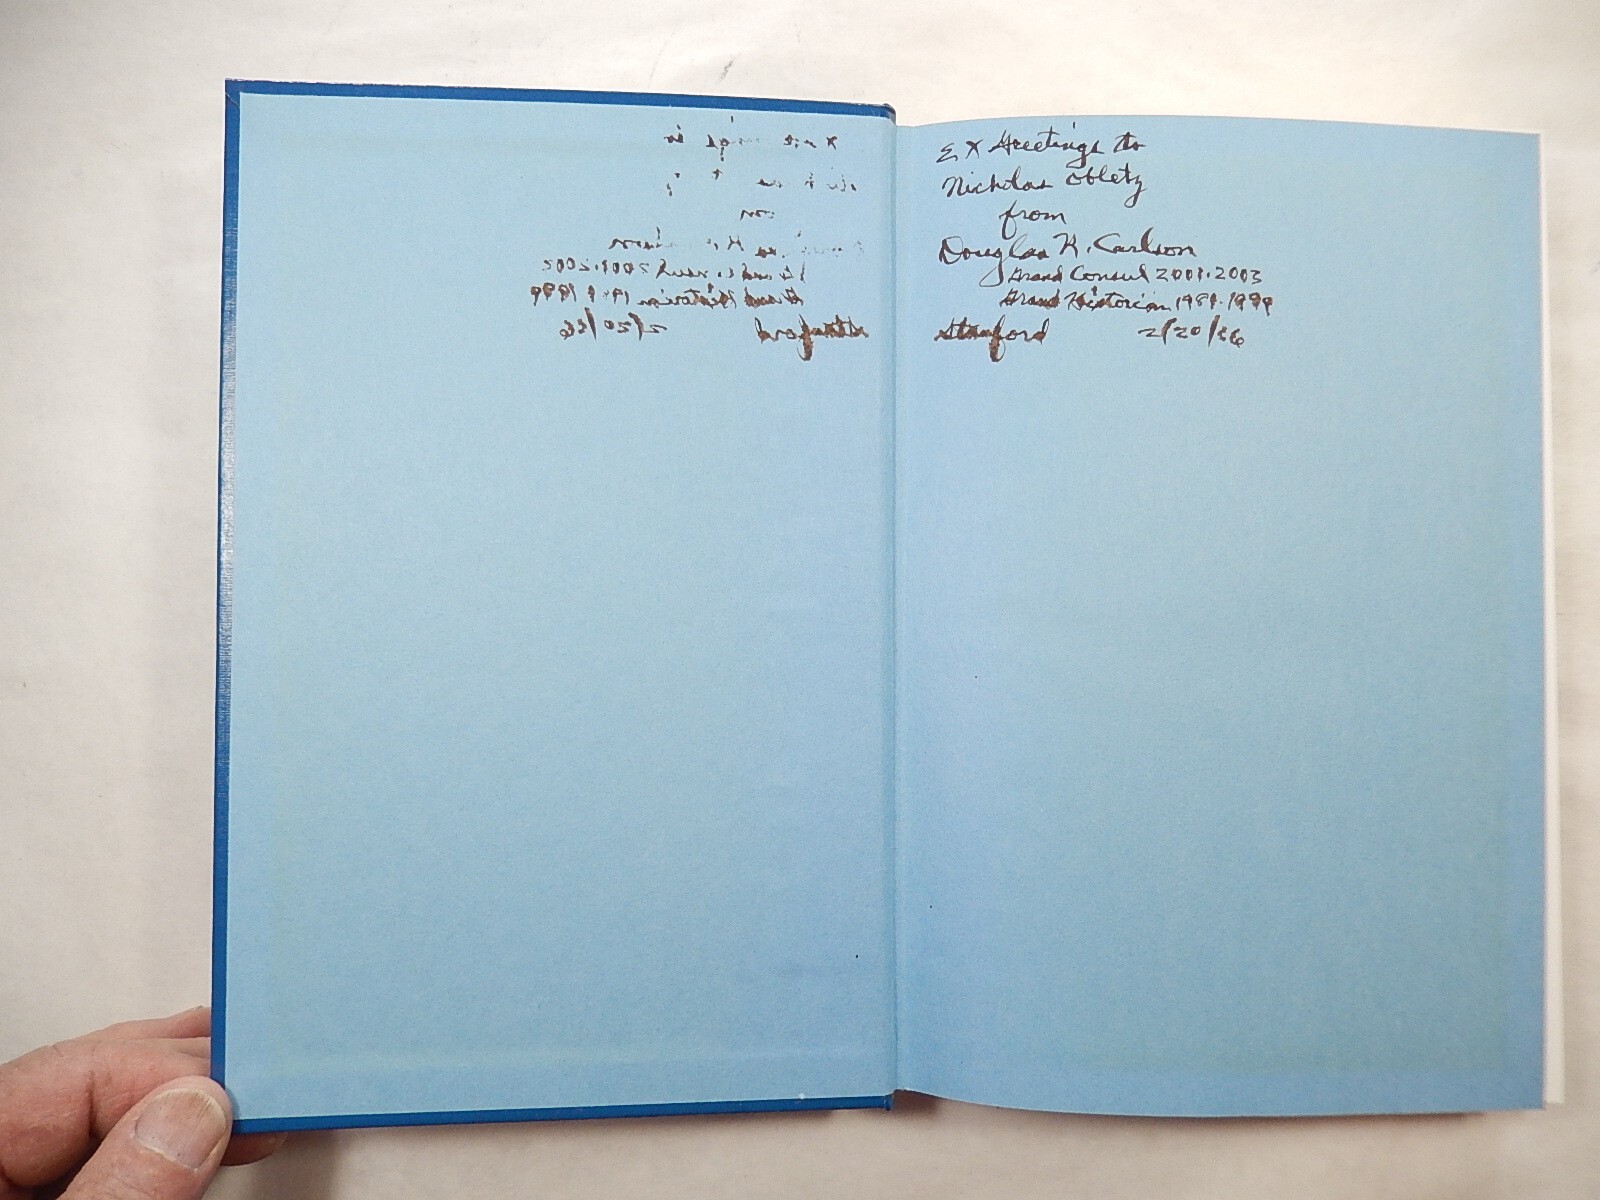 Σ X Greetings to
Nicholas Obletz
from
Douglas R. Carlson
Grand Consul 2001-2003
Grand Historian 1989-1999
Stanford 2/20/